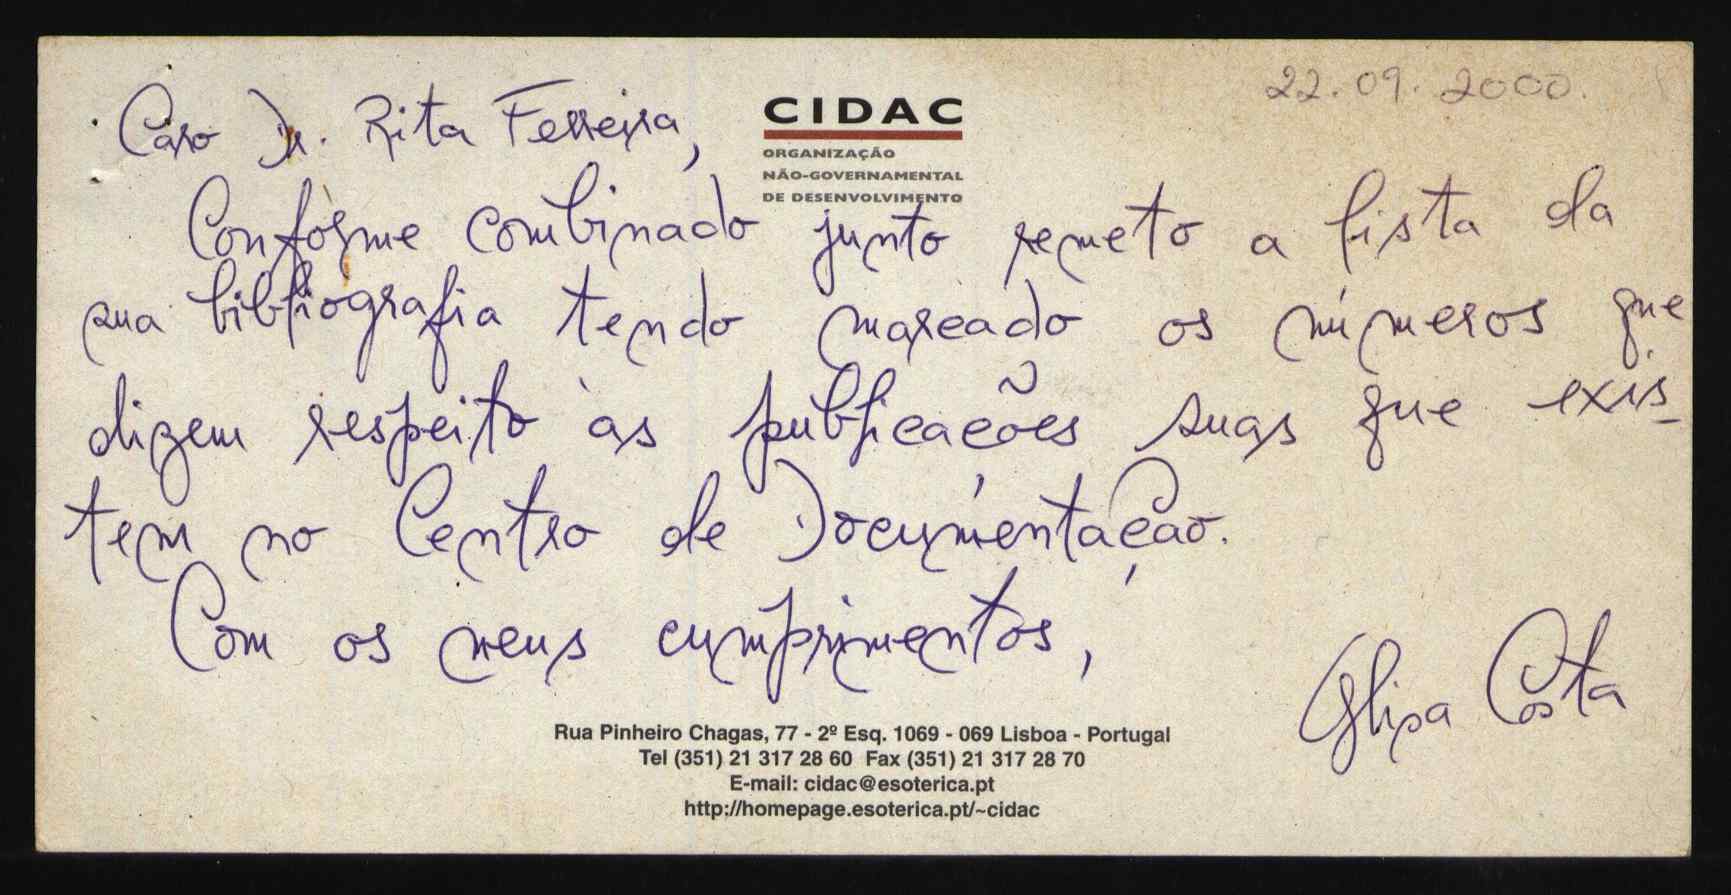 22.09.2000.
CIDAC
ORGANIZAÇÃO
NÃO-GOVERNAMENTAL
DE DESENVOLVIMENTO
Caro Dr. Rita Ferreira,
Conforme combinado junto remeto a lista da
sua bibliografia tendo marcado os números que
dizem respeito às publicações suas que exis-
tem no Centro de Documentação.
Com os meus cumprimentos,
Elisa Costa
Rua Pinheiro Chagas, 77 - 2º Esq. 1069 - 069 Lisboa - Portugal
Tel (351) 21 317 28 60 Fax (351) 21 317 28 70
E-mail: cidac@esoterica.pt
http://homepage.esoterica.pt/~cidac